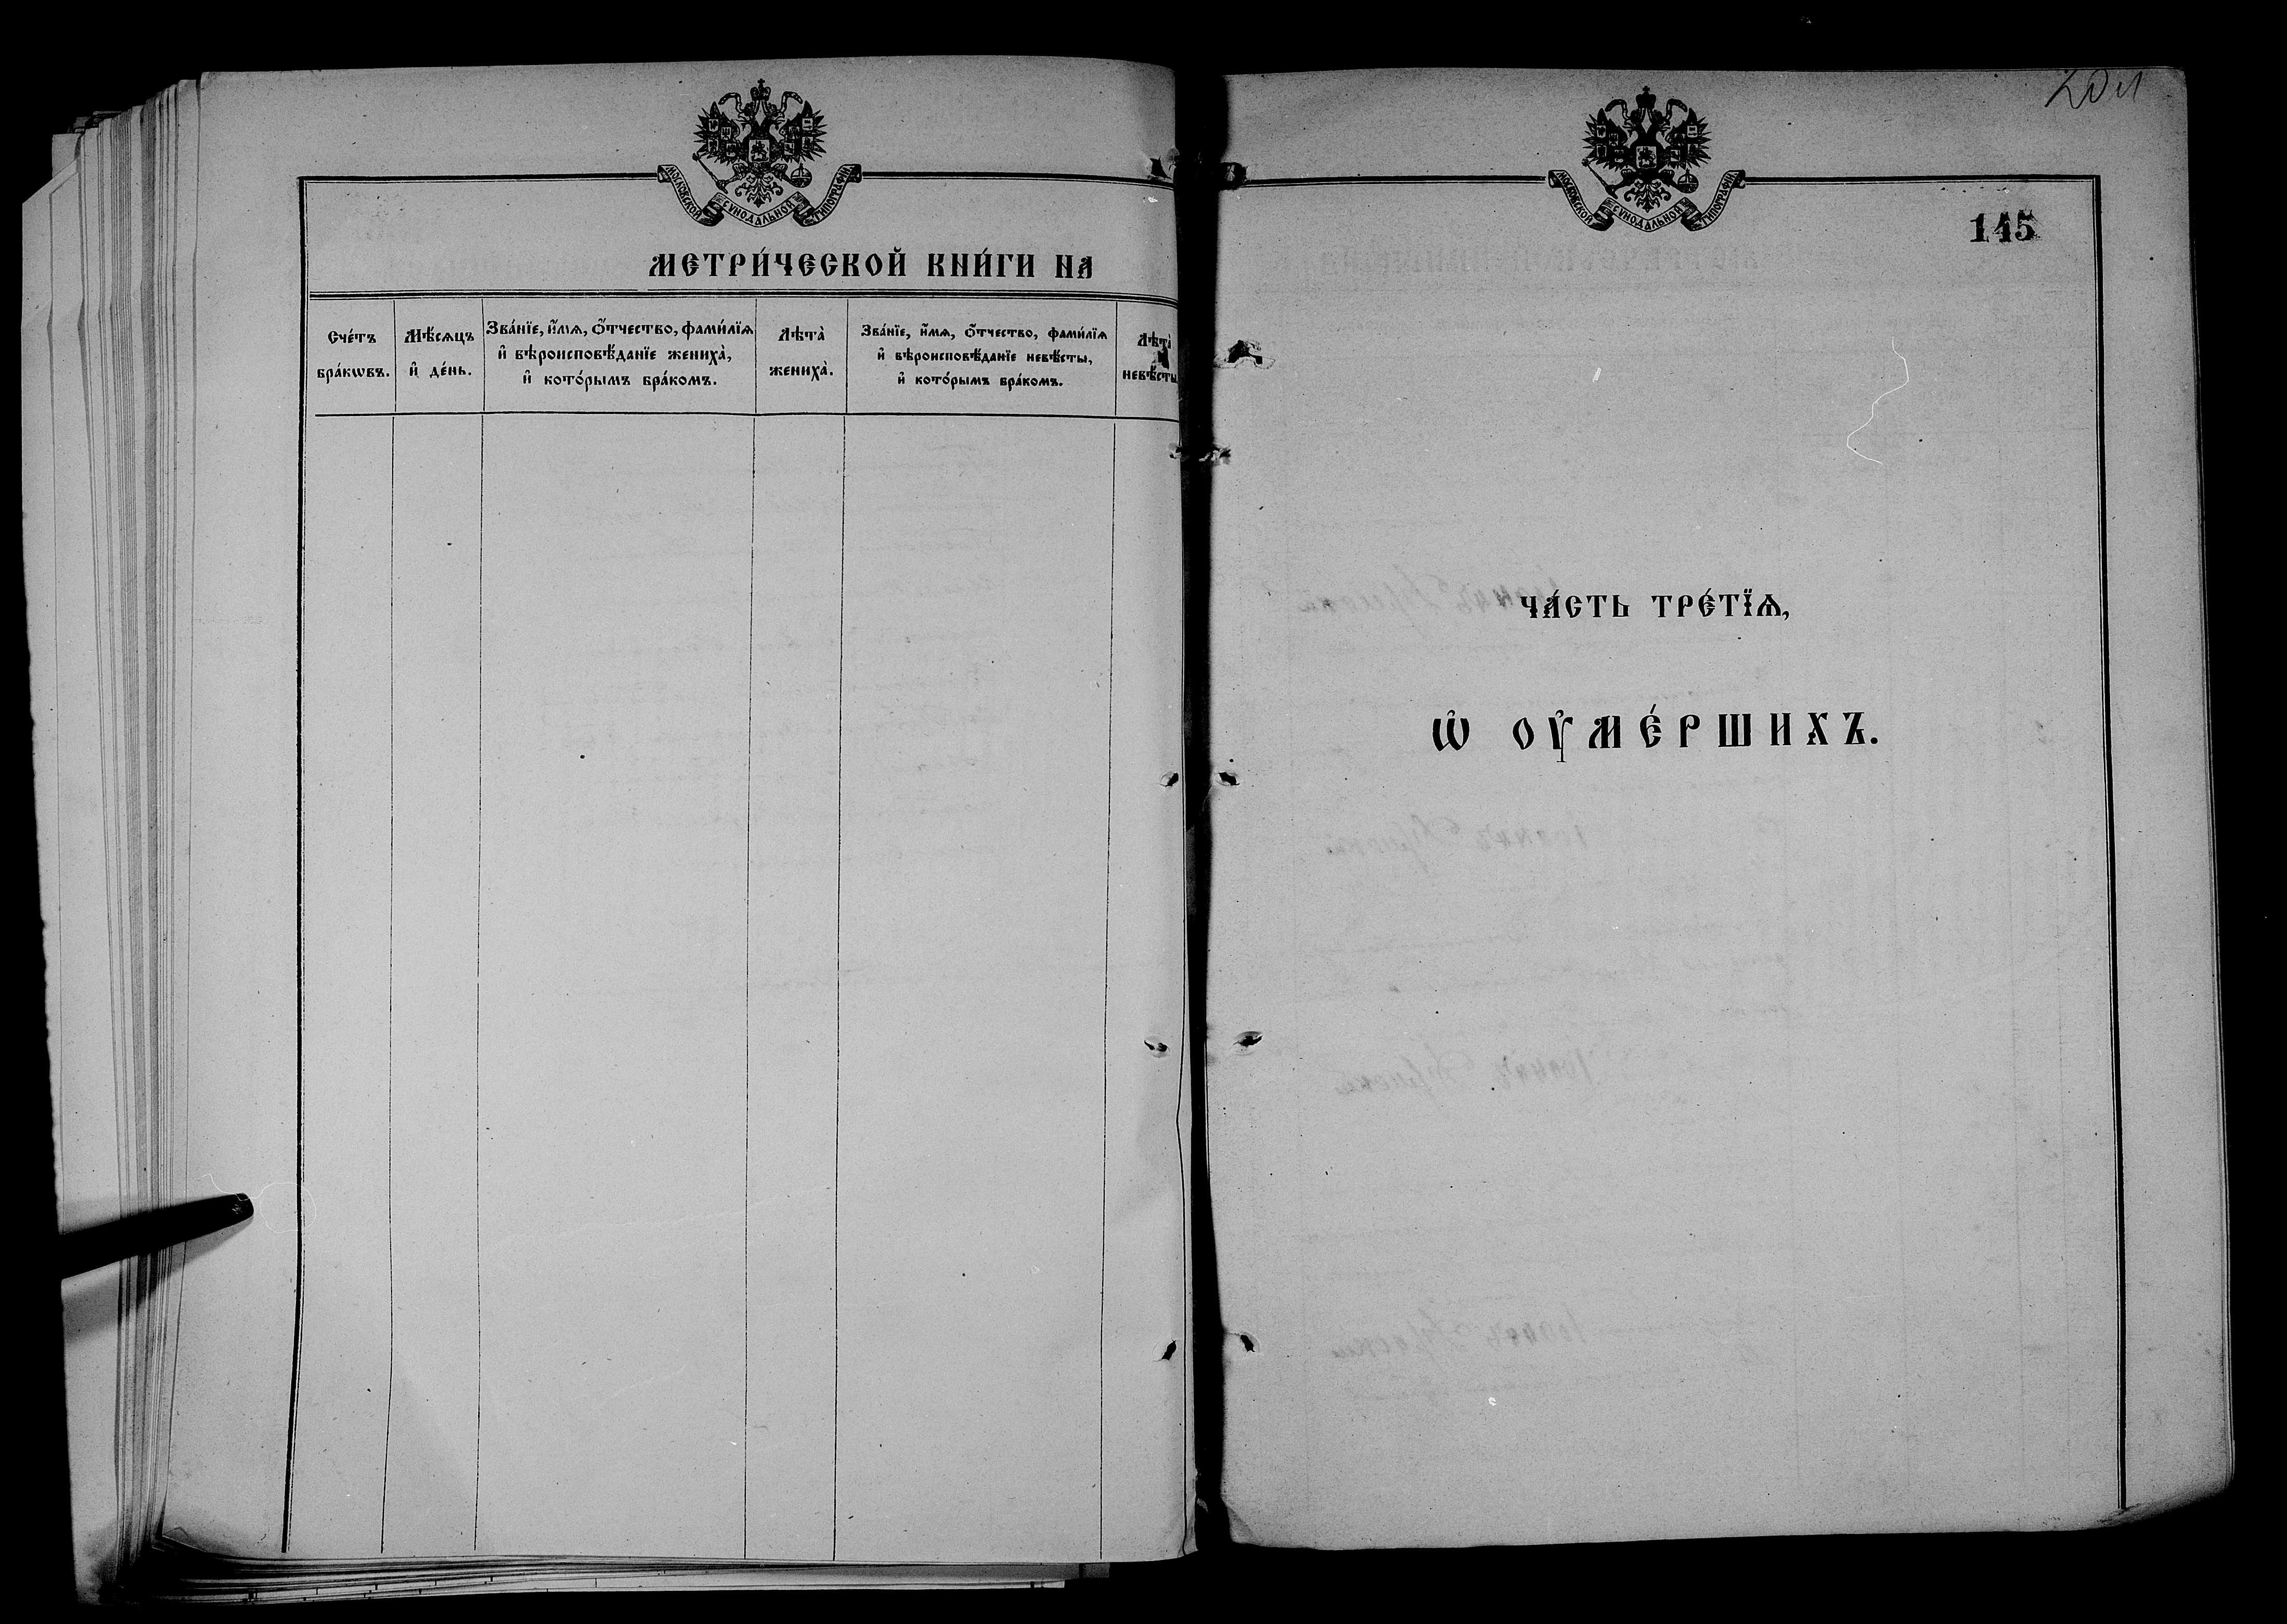 МОСКОВСКОЙ СѴНОДАЛЬНОЙ ТИПОГРАФІИ
МЕТРИ́ЧЕСКОЙ КНИ́ГИ НА
Сче́тъ бра́кѡвъ.
Мѣ́сѧцъ и҆ де́нь.
Зва́нїе, и҆́мѧ, ѻ҆́тчество, фами́лїѧ
и҆ вѣроисповѣ́данїе жениха̀,
и҆ кото́рымъ бра́комъ.
Лѣта̀ жениха̀.
Зва́нїе, и҆́мѧ, ѻ҆́тчество, фами́лїѧ
и҆ вѣроисповѣ́данїе невѣ́сты,
и҆ кото́рымъ бра́комъ.
Лѣта̀ невѣ́сты
МОСКОВСКОЙ СѴНОДАЛЬНОЙ ТИПОГРАФІИ
145
ЧА́СТЬ ТРЕ́ТЇѦ,
Ѡ҆ ОУ҆МЕ́РШИХЪ.